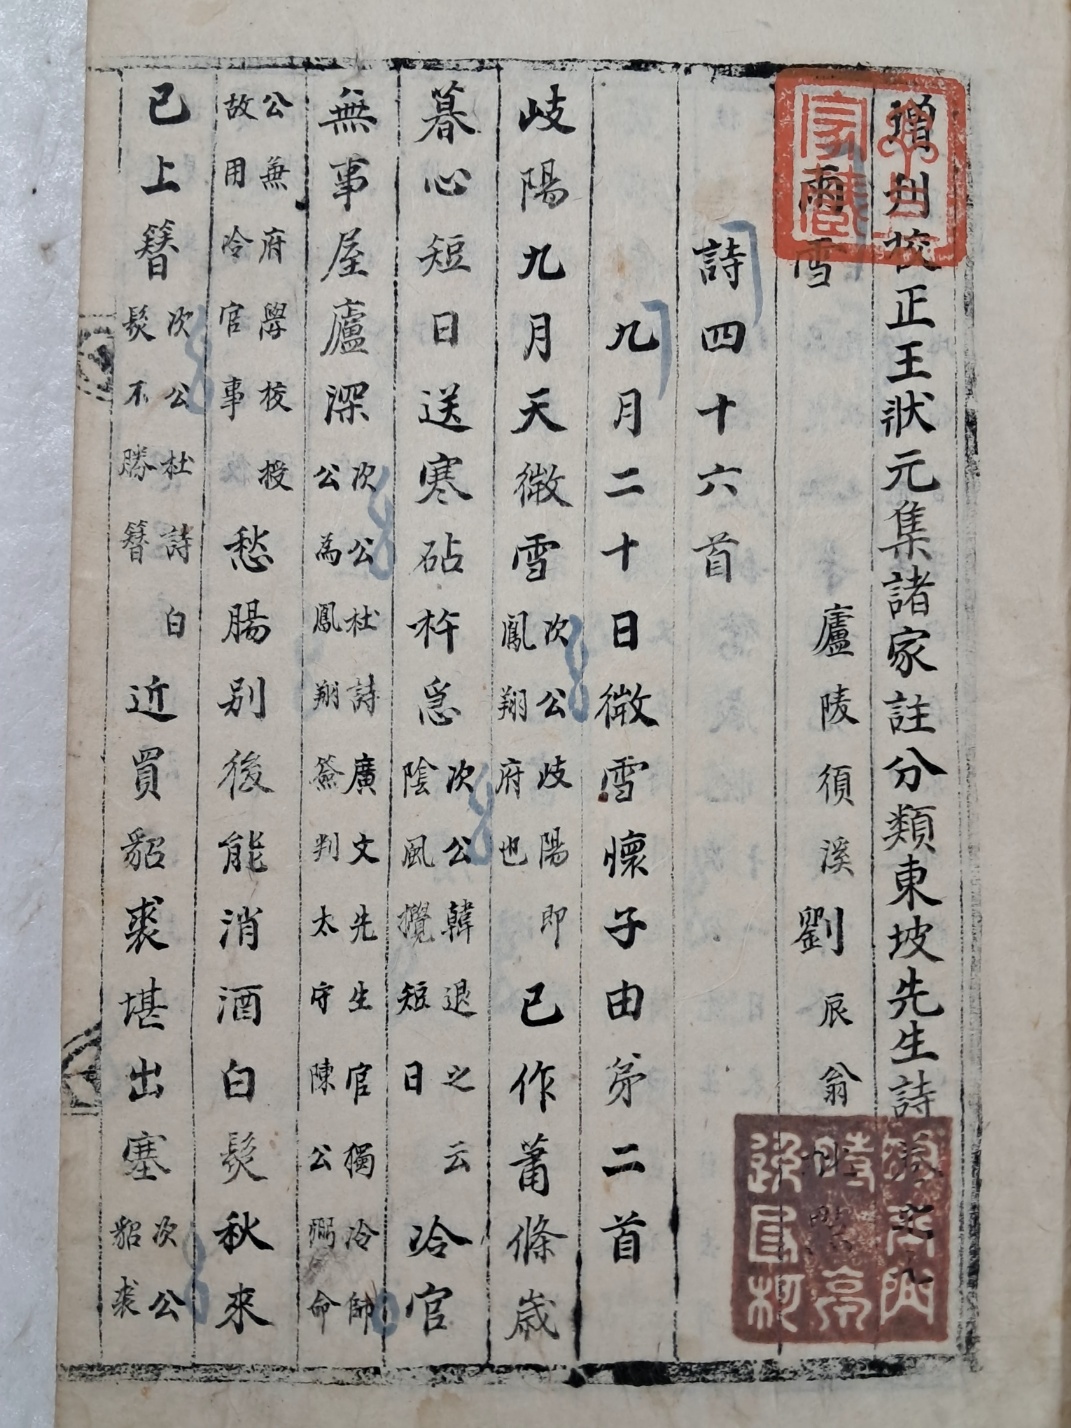 增刊校正王狀元集諸家註分類東坡先生詩卷之九
廬陵須溪劉辰翁批點
雨雪
詩四十六首
九月二十日微雪懷子由弟二首
岐陽九月天微雪次公岐陽即鳳翔府也已作蕭條歲
暮心短日送寒砧杵急次公韓退之云陰風攪短日冷官
無事屋廬深次公杜詩廣文先生官獨冷師公為鳳翔簽判太守陳公弼命
公無府學校授故用冷官事愁腸別後能消酒白髮秋來
已上簪次公杜詩白髮不勝簪近買貂裘堪出塞次公貂裘